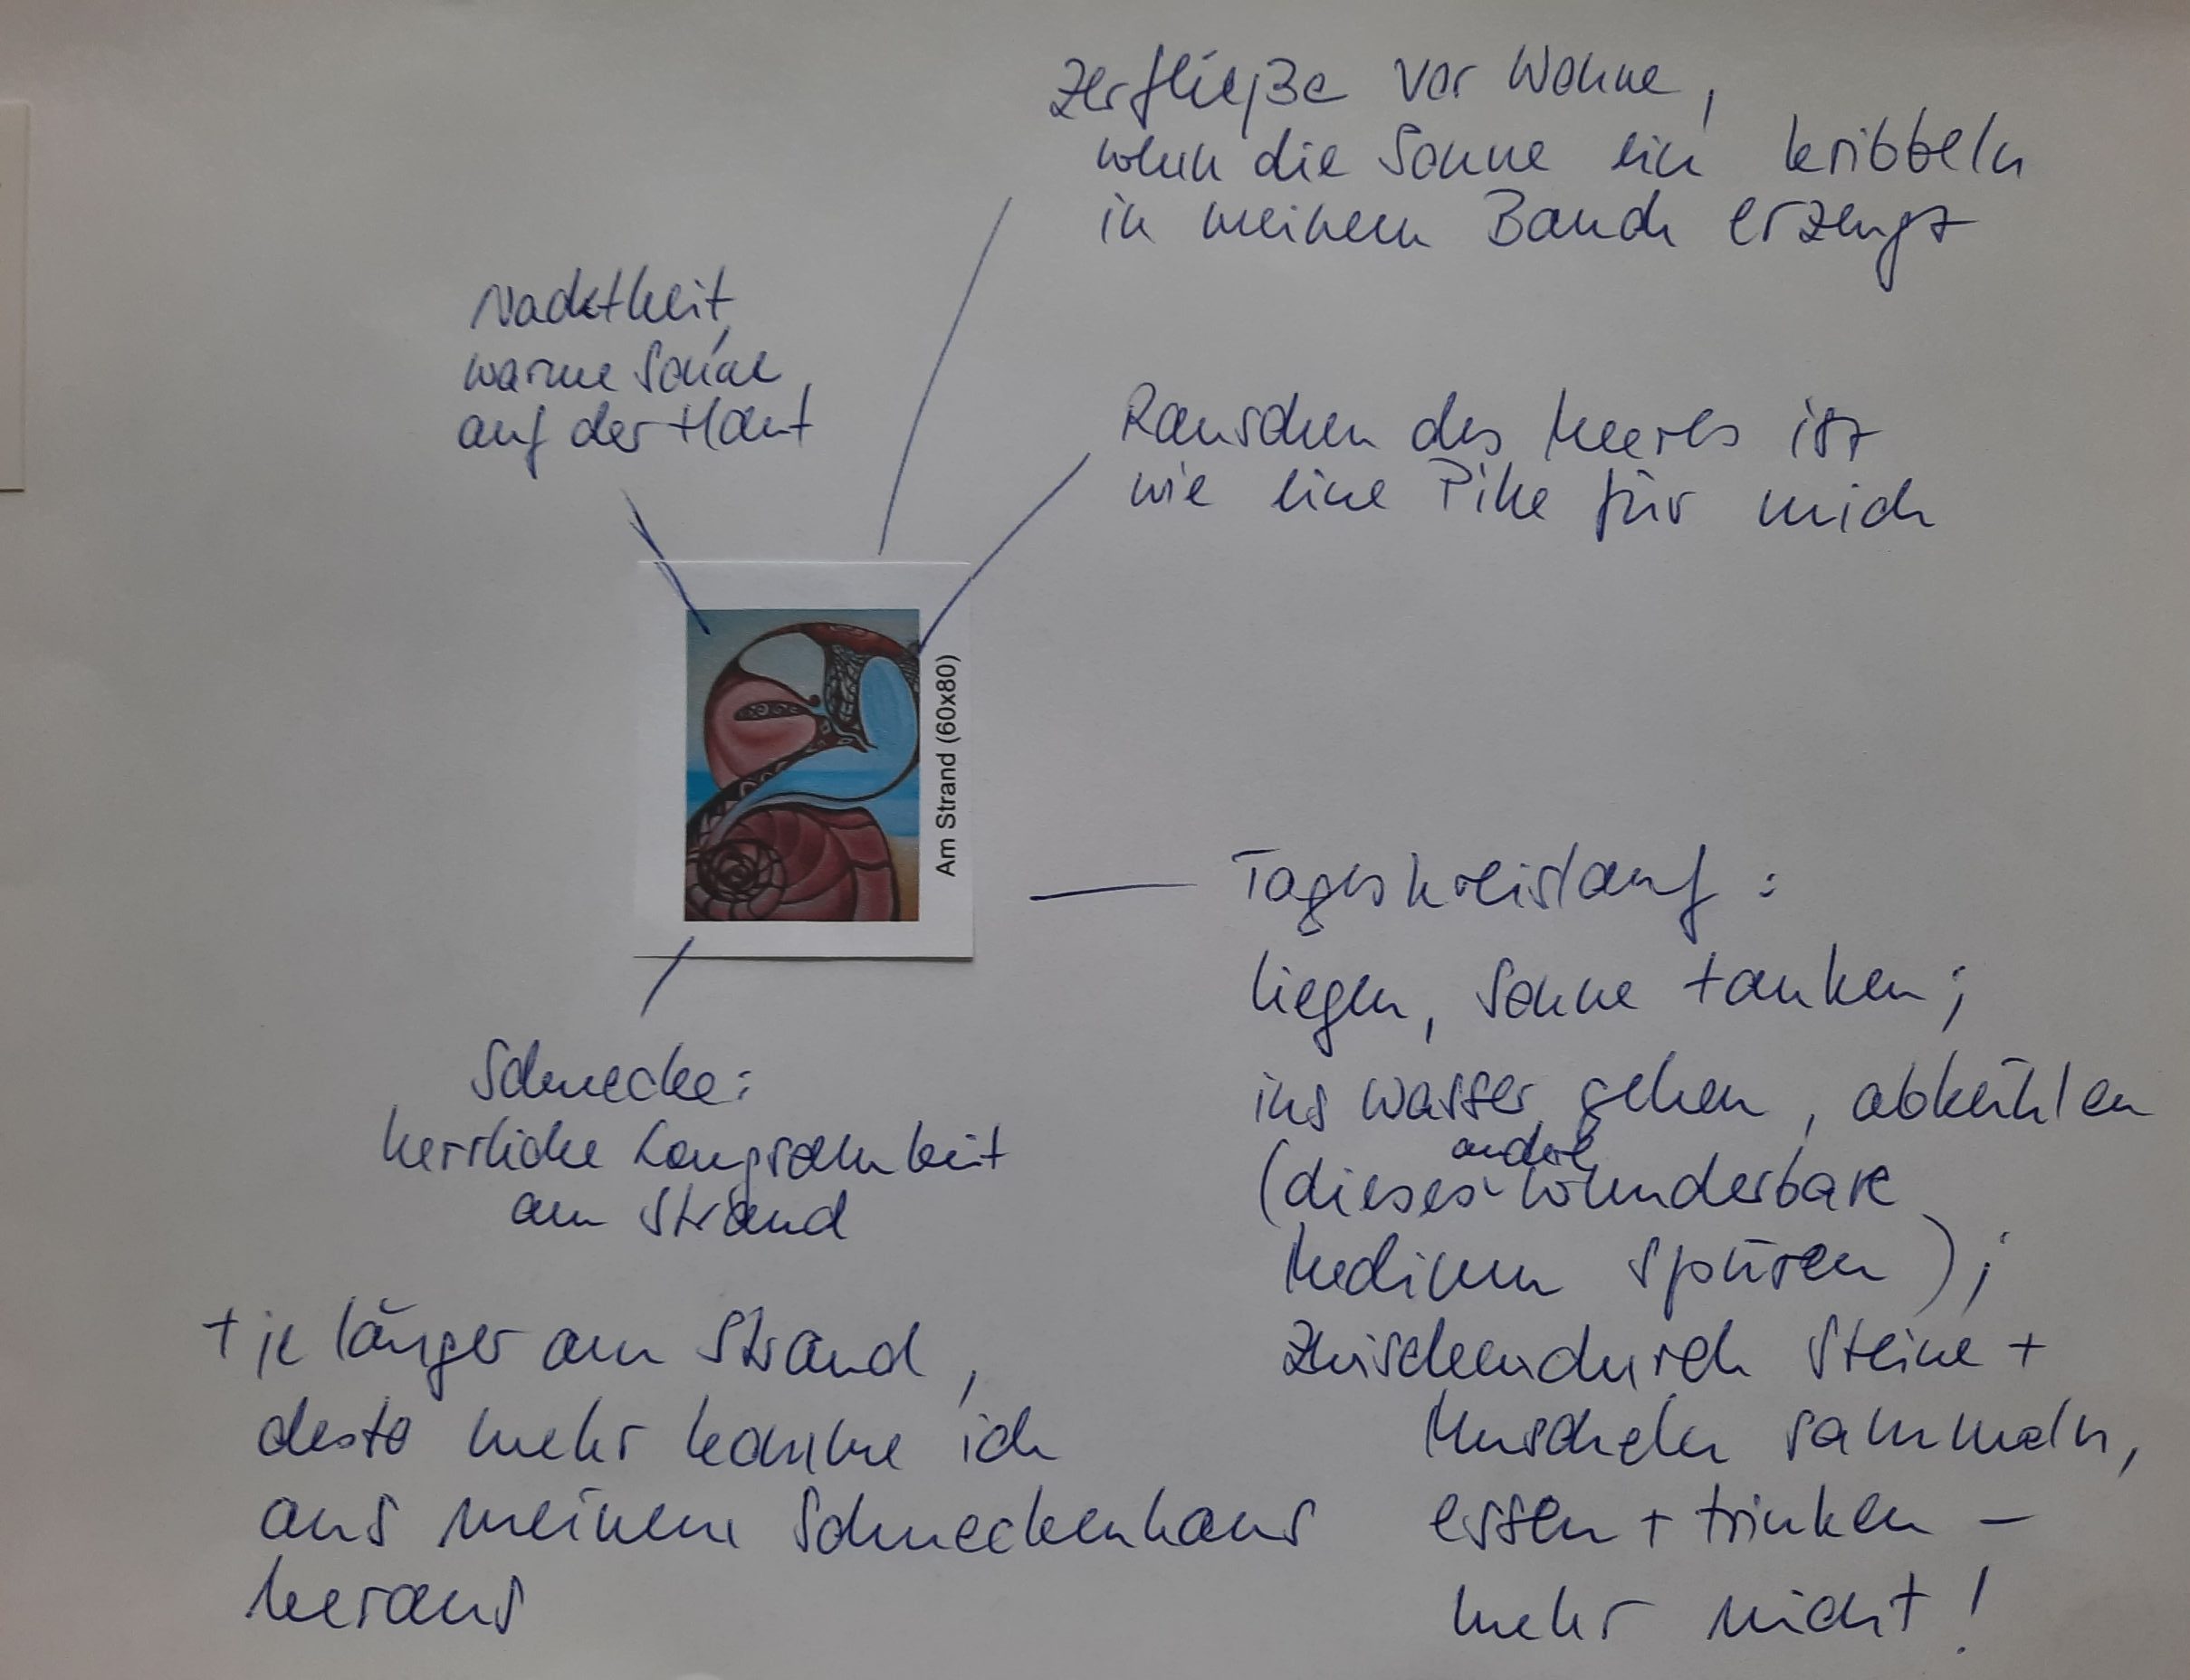 zerfließe vor Wonne,
wenn die Sonne ein kribbeln
in meinem Bauch erzeugt
Nacktheit,
warme Sonne
auf der Haut
Rauschen des Meeres ist
wie eine Pille für mich
Am Strand (60x80)
Tageskreislauf:
liegen, Sonne tanken;
ins Wasser gehen, abkühlen
andere
(dieses wunderbare
Medium spüren);
zwischendurch Steine +
Muscheln sammeln,
essen + trinken –
mehr nicht!
Schnecke:
herrliche Langsamkeit
am Strand
+ je länger am Strand,
desto mehr komme ich
aus meinem Schneckenhaus
heraus